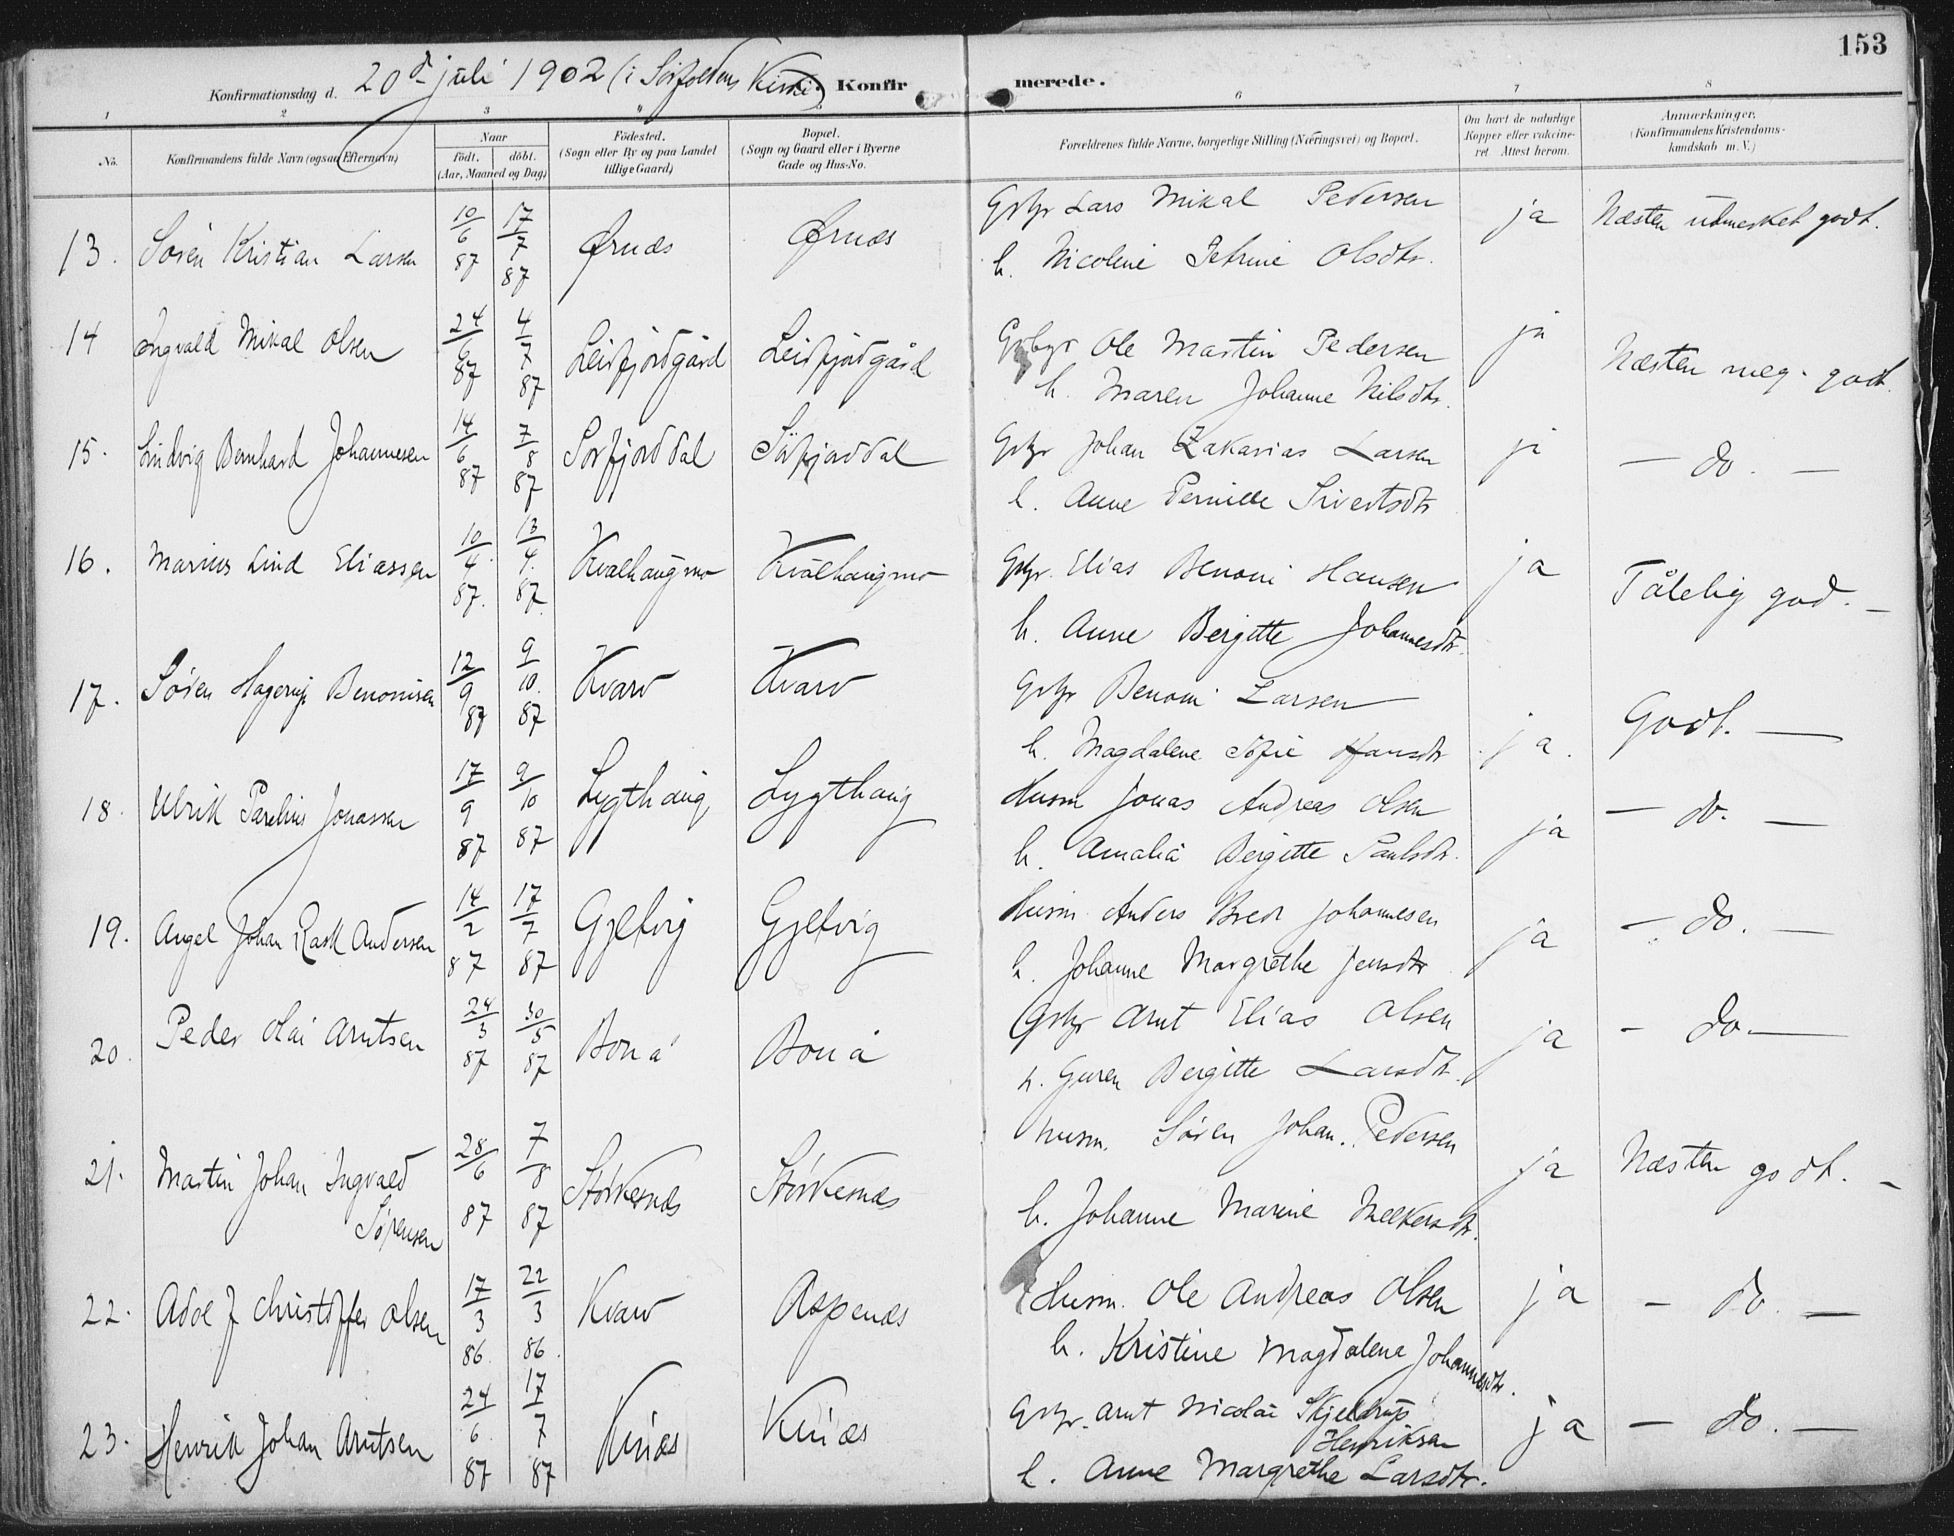 153
Konfirmationsdag d. 20de juli 1902 (i Sørfolden Kirke). C. Konfirmerede.
1 2 3 4 5 6 7 8
No.
Konfirmandens fulde Navn (ogsaa Efternavn)
Naar
født. døbt.
(Aar, Maaned og Dag)
Fødested.
(Sogn eller By og paa Landet
tillige Gaard)
Bopæl.
(Sogn og Gaard eller i Byerne
Gade og Hus-No.
Forældrenes fulde Navne, borgerlige Stilling (Næringsvei) og Bopæl.
Om havt de naturlige
Kopper eller vakcine-
ret. Attest herom.
Anmærkninger.
(Konfirmandens Kristendoms-
kundskab m. V.)
13. Søren Kristian Larsen 10/6 87 17/7 87 Ørnæs Ørnæs Gbr Lars Mikal Pedersen ja Næsten udmerket godt.
h. Nicoline Petrine Olsdtr.
14 Ingvald Mikal Olsen 24/6 87 4/7 87 Leirfjordgård Leirfjordgård Gbr Ole Martin Pedersen ja Næsten meg. godt.
h. Maren Johanne Nilsdtr.
15. Lindvig Bernhard Johannesen 14/6 87 7/8 87 Sørfjorddal Sørfjorddal Gbr Johan Zakarias Larsen ja — do. —
h. Anne Pernille Sivertsdtr
16. Marius Lind Eliassen 10/4 87. 13/4. 87. Kvalhaugmo Kvalhaugmo Gbr. Elias Benoni Hansen ja Tålelig god. —
h. Anne Bergitte Johannesdtr.
17. Søren Hagerup Benonisen 12/9 87 9/10. 87 Kvarv Kvarv Gbr Benoni Larsen ja. Godt. —
h. Magdalene Sofie Hansdtr
18. Ulrik Parelius Jonassen 17/9 87 9/10 87 Lygthaug Lygthaug Husm Jonas Andreas Olsen ja — do. —
h. Amalia Bergitte Paulsdtr.
19. Angel Johan Rask Andersen 14/2 87 17/7 87 Gjelvig Gjelvig Husm Anders Bredr Johannesen ja — do. —
h. Johanne Margrethe Jensdtr
20. Peder Olai Arntsen 24/3 87 30/5 87 Bonå Bonå Gbr Arnt Elias Olsen ja - do —
h. Guren Bergitte Larsdtr.
21. Martin Johan Ingvald 28/6 87 7/8 87 Størkesnæs Størkesnæs Husm. Søren Johan. Pedersen ja Næsten godt. —
Sørensen h. Johanne Marine
22. Adolf Christoffer Olsen 17/3 86. 22/3 86. Kvarv Aspenæs Husm. Ole Andreas Olsen ja - do. —
h. Kristine Magdalena Johannesdtr.
23. Henrik Johan Arntsen 24/6 87 17/7 87 Kinæs Kinæs Gbr. Arnt Nicolai Skjeldrup ja — do. —
Henriksen
h. Anne Margrethe Larsdtr.